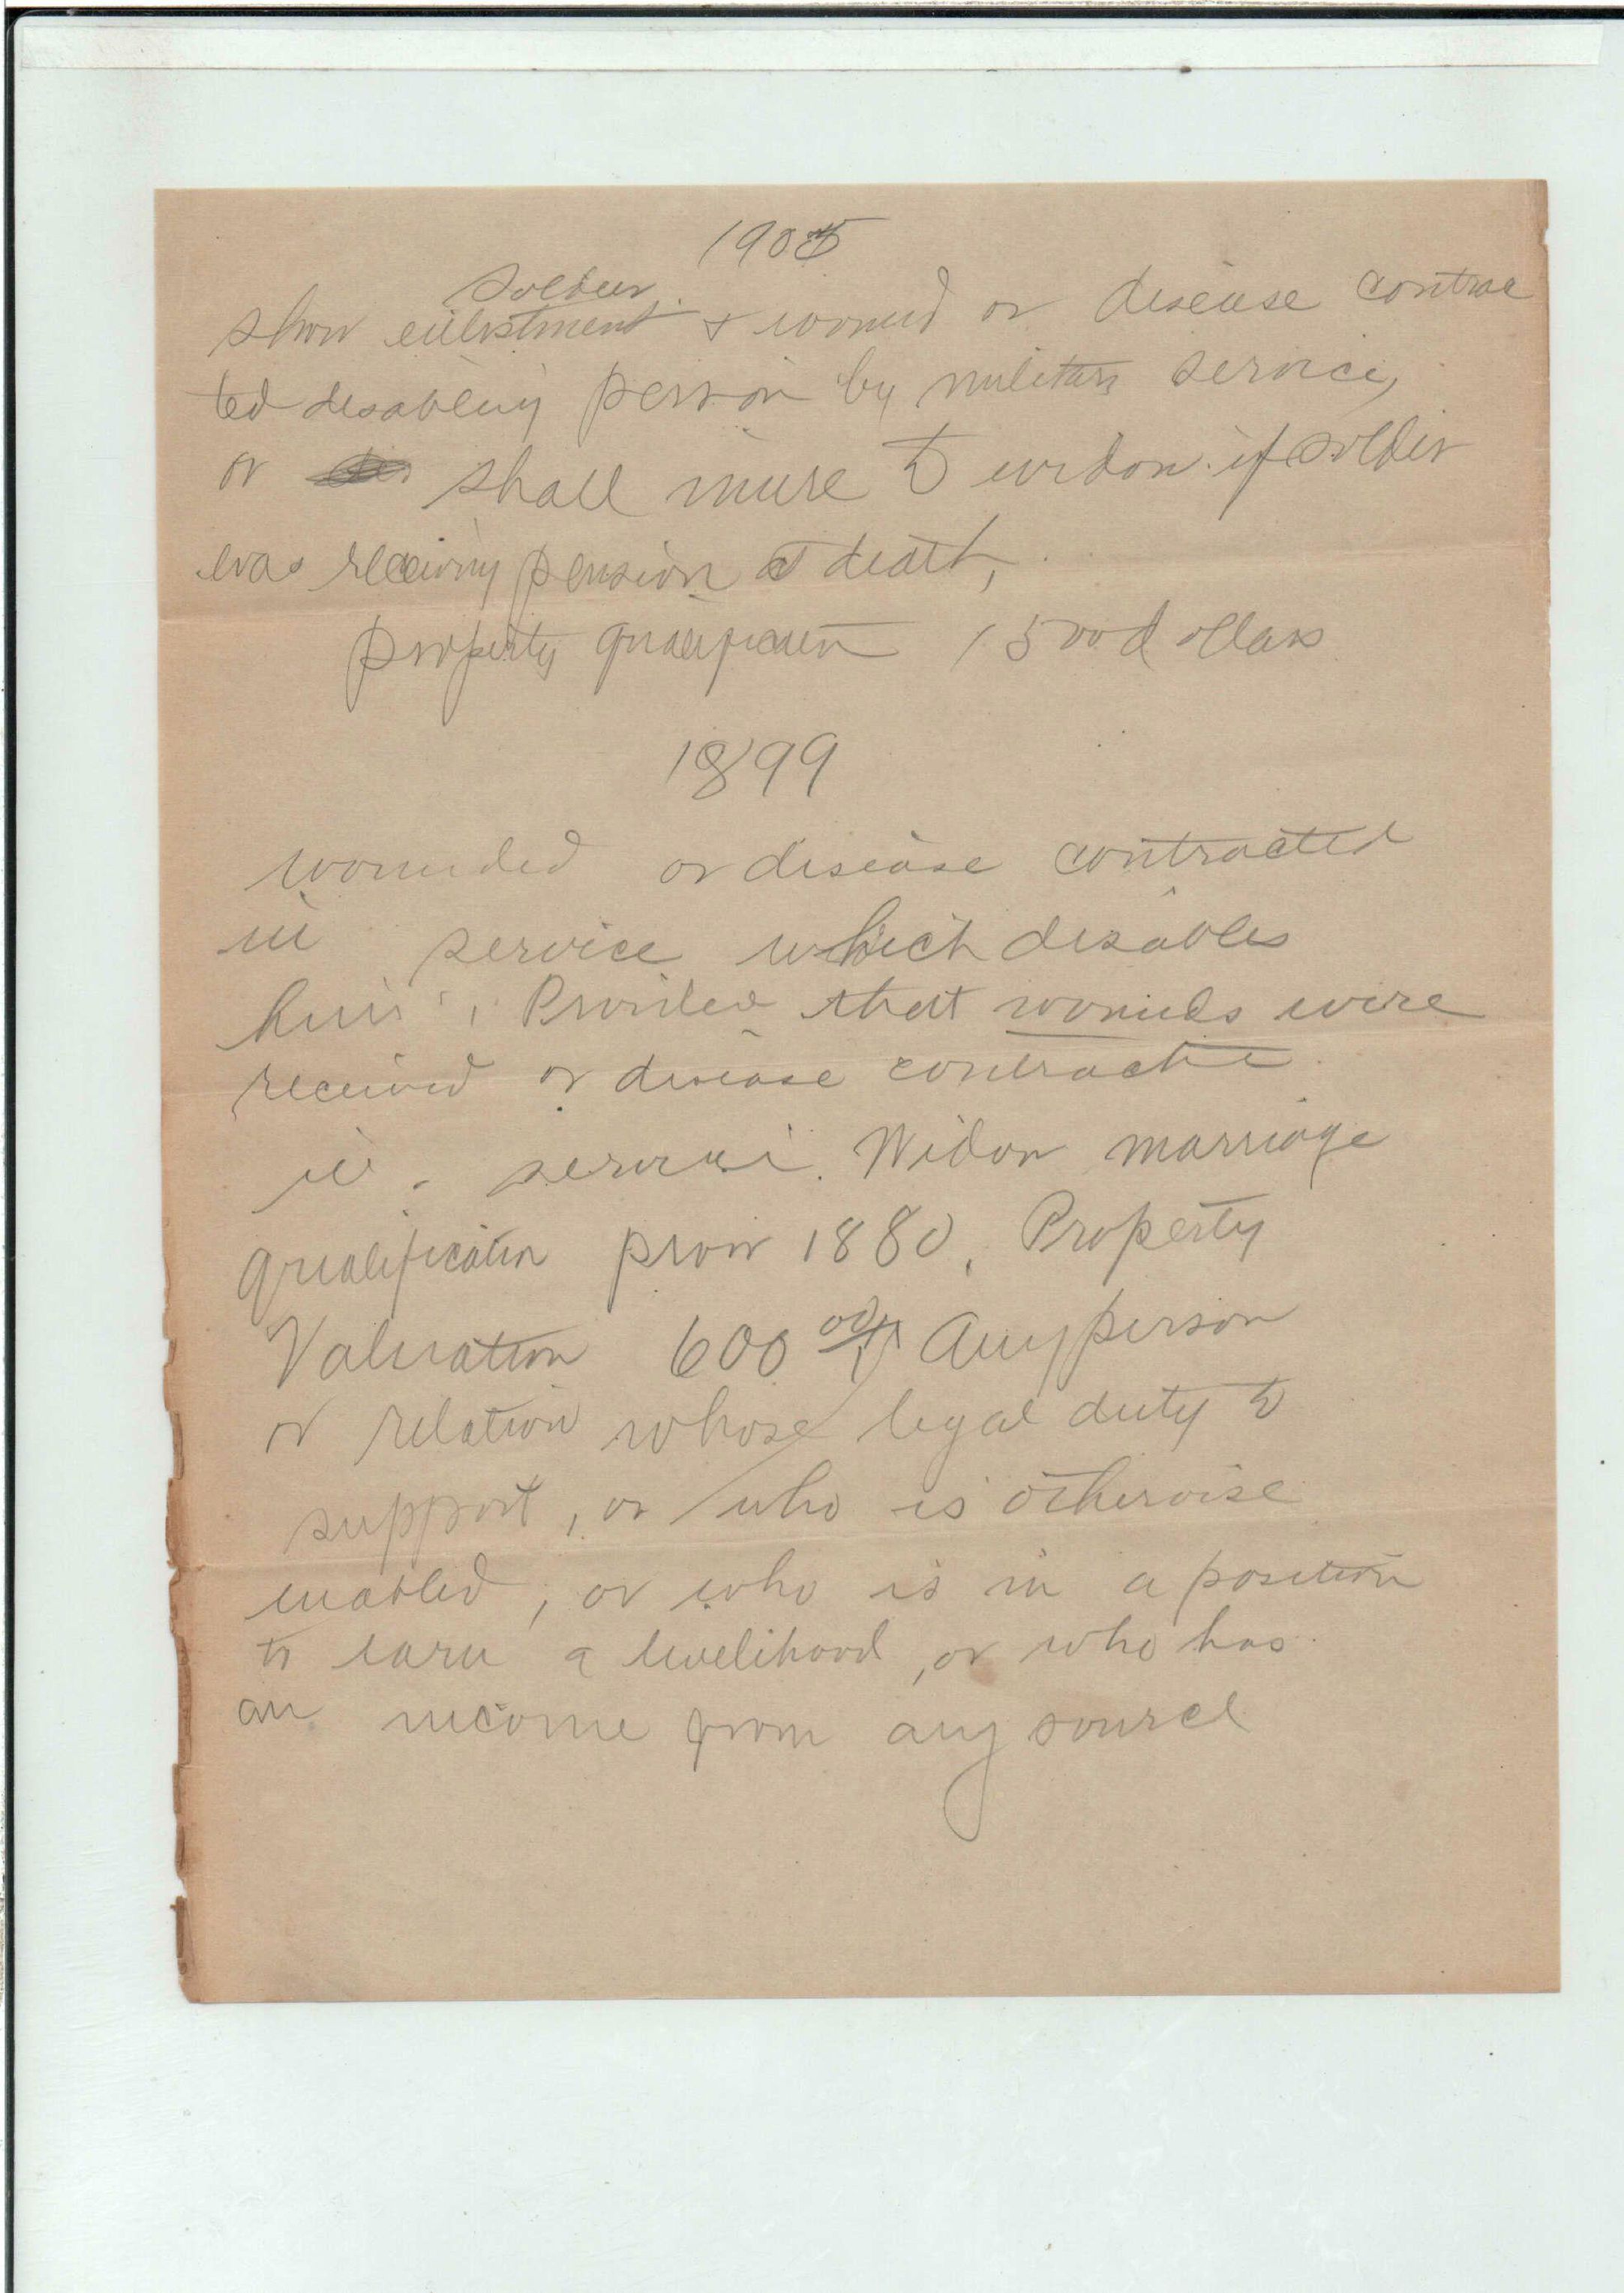 1905
soldier
show enlistment & wound or disease contrac
ted disabling person by military service,
or shall inure to widow if soldier
was receiving pension at death,
property qualification 1500 dollars
1899
wounded or disease contracted
in service which disables
him, Provided that wounds were
received or disease contracted
in service. Widow marriage
qualification prior 1880, Property
Valuation 600 00 Any person
or relation whose legal duty to
support, or who is otherwise
enabled, or who is in a position
to earn a livelihood, or who has
an income from any source